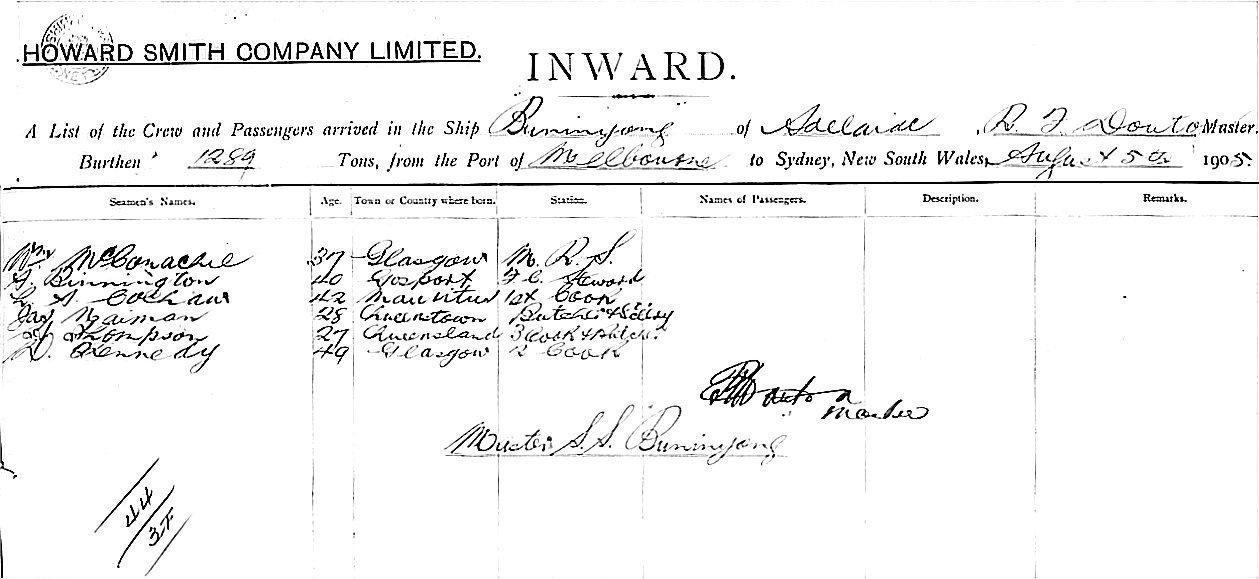 HOWARD SMITH COMPANY LIMITED.
INWARD.
A List of the Crew and Passengers arrived in the Ship Buninyong of Adelaide, R. F. Master.
Burthen 1289 Tons, from the Port of Melbourne to Sydney, New South Wales, August 5th 1905.
Seamen's Names. Age. Town or Country where born. Station. Names of Passengers. Description. Remarks.
Wm McConachie 37 Glasgow M. R. S.
A. Binnington 40 Gosport F. C. Steward
A. 42 Mauritus 1st Cook
Jas Naiman 28 Queenstown Butcher
Thompson 27 Queensland 3 Cook
D. Kennedy 49 Glasgow 2 Cook
Master
S. S. Buninyong
44